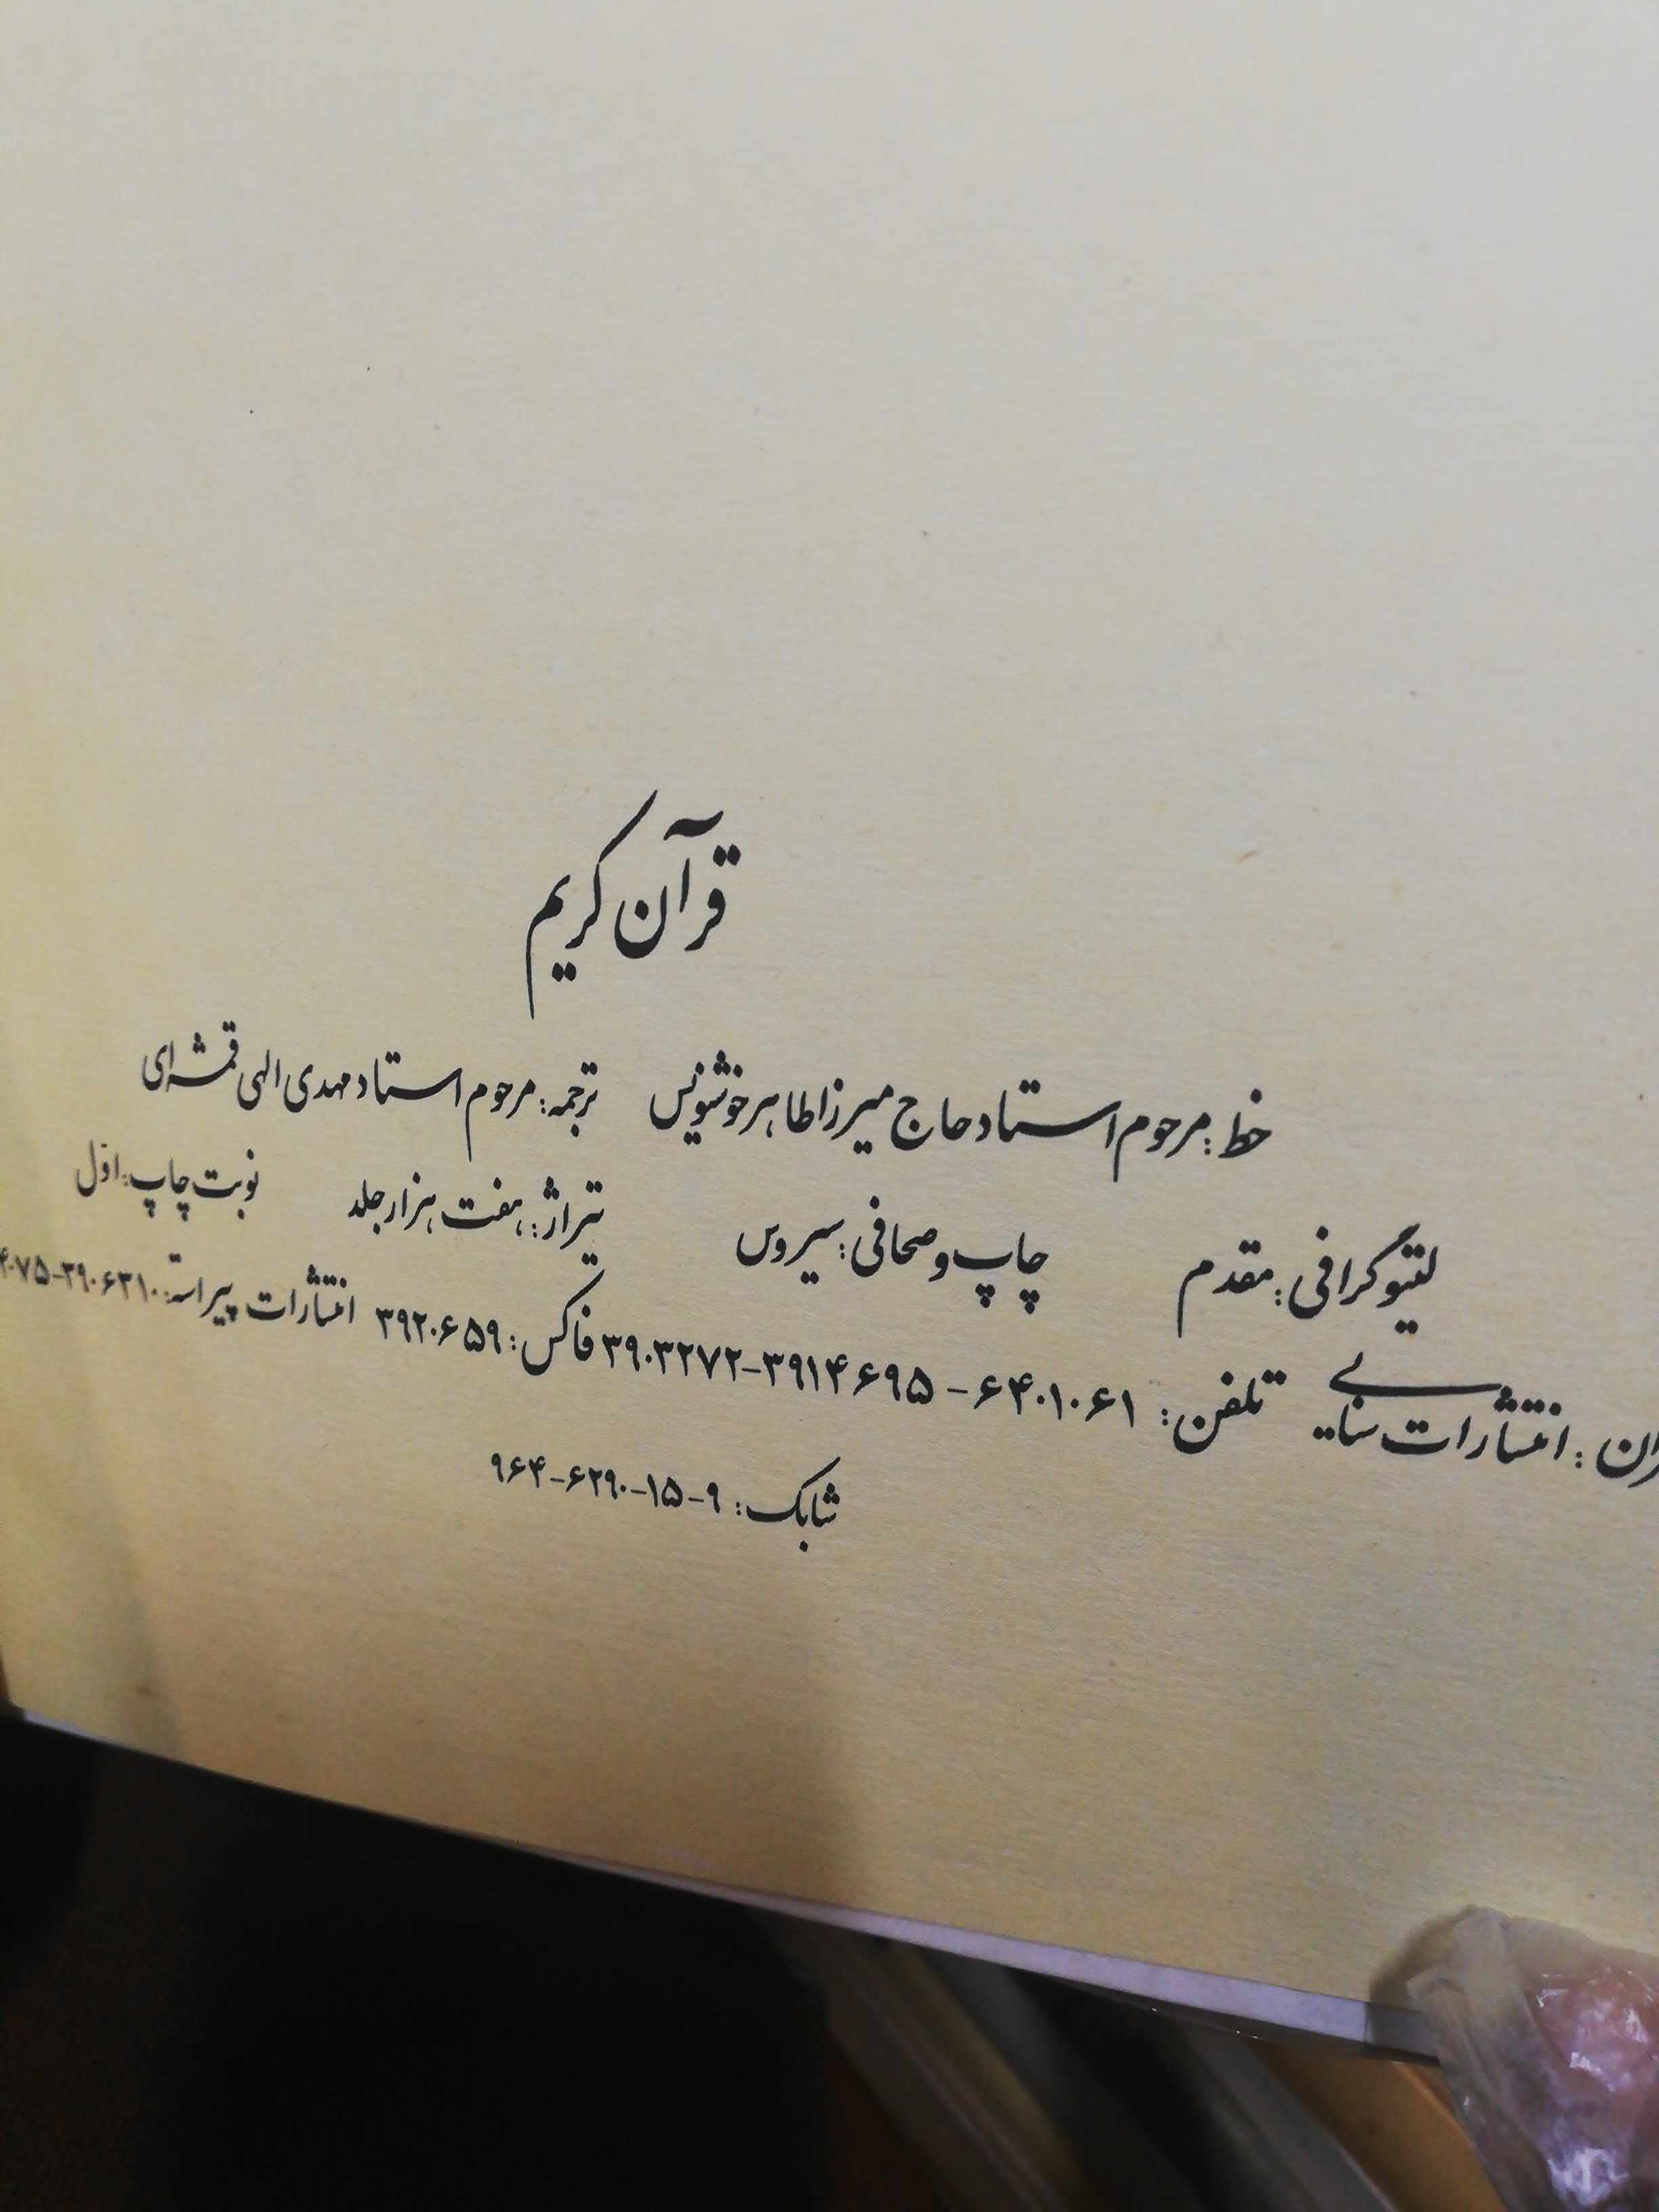 قرآن کریم
خط: مرحوم استاد حاج میرزا طاهر خوشنویس ترجمه: مرحوم استاد مهدی الهی قمشه‌ای
لیتوگرافی: مقدم چاپ و صحافی: سیروس تیراژ: هفت هزار جلد نوبت چاپ: اول
انتشارات سنایی تلفن: ۶۴۰۱۰۶۱ - ۳۹۱۴۶۹۵-۳۹۰۳۲۷۲ فاکس: ۳۹۲۰۶۵۹ انتشارات پیراسته: ۳۹۰۶۳۱۰-
شابک: ۹-۱۵-۶۲۹۰-۹۶۴